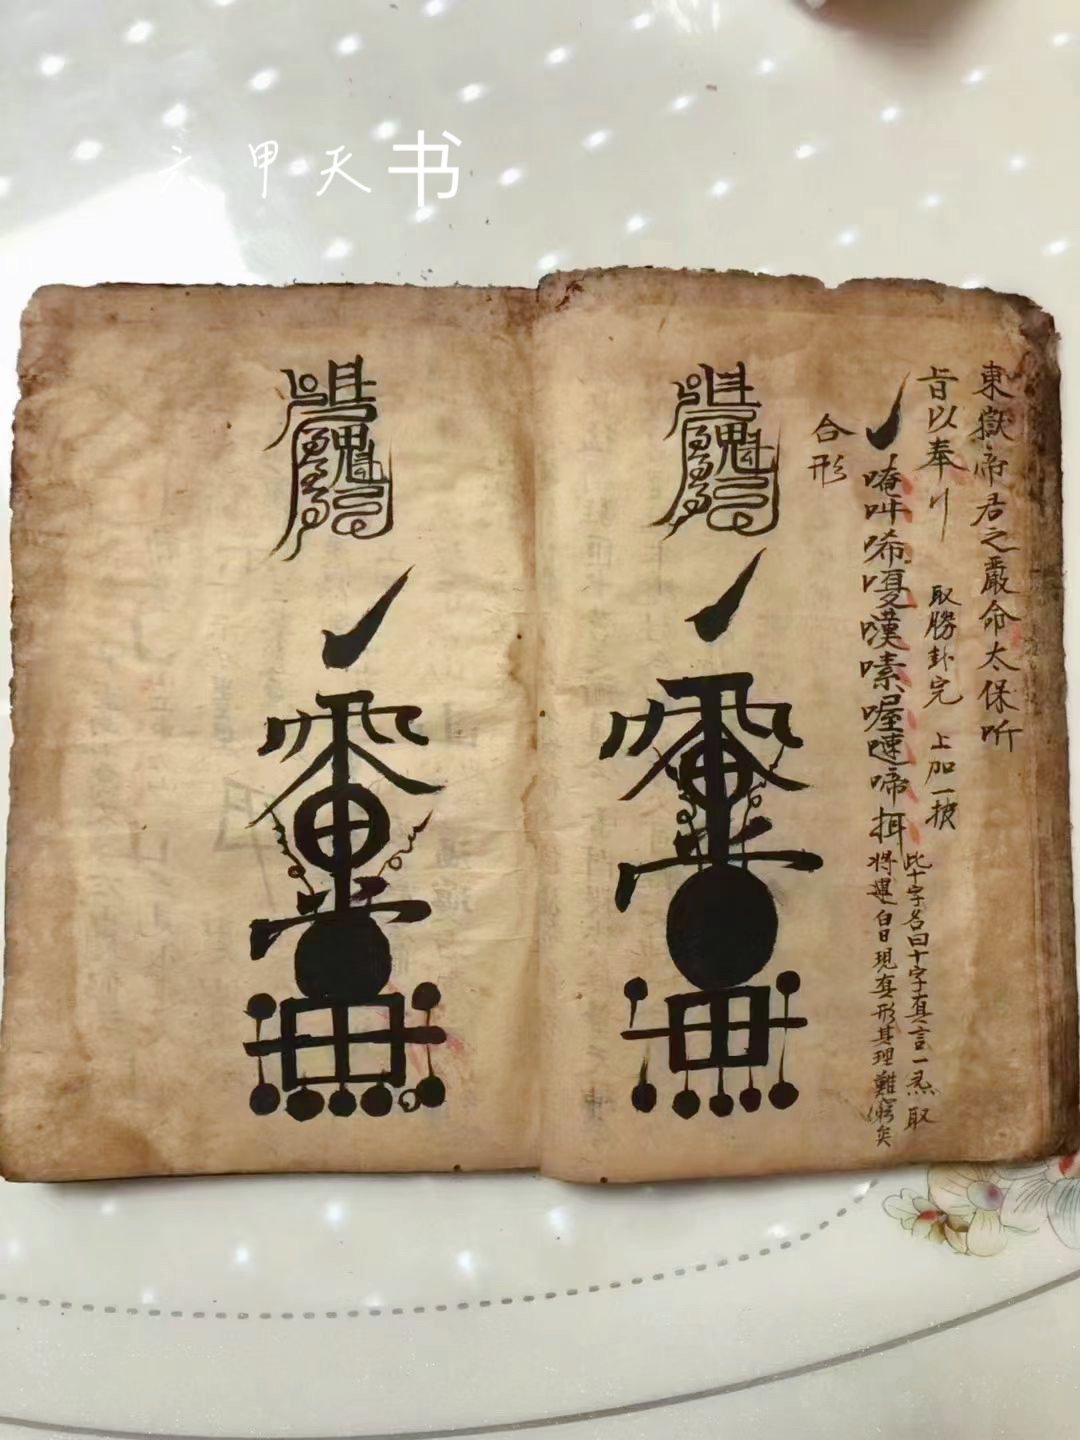 六甲天书
東嶽帝君之嚴命太保听
旨以奉行 取勝卦完 上加一披
唵吽唏嗄嘆嗉喔啼揖
此十字名曰十字真言一炁取
將運白日現真形其理難窮矣
合形